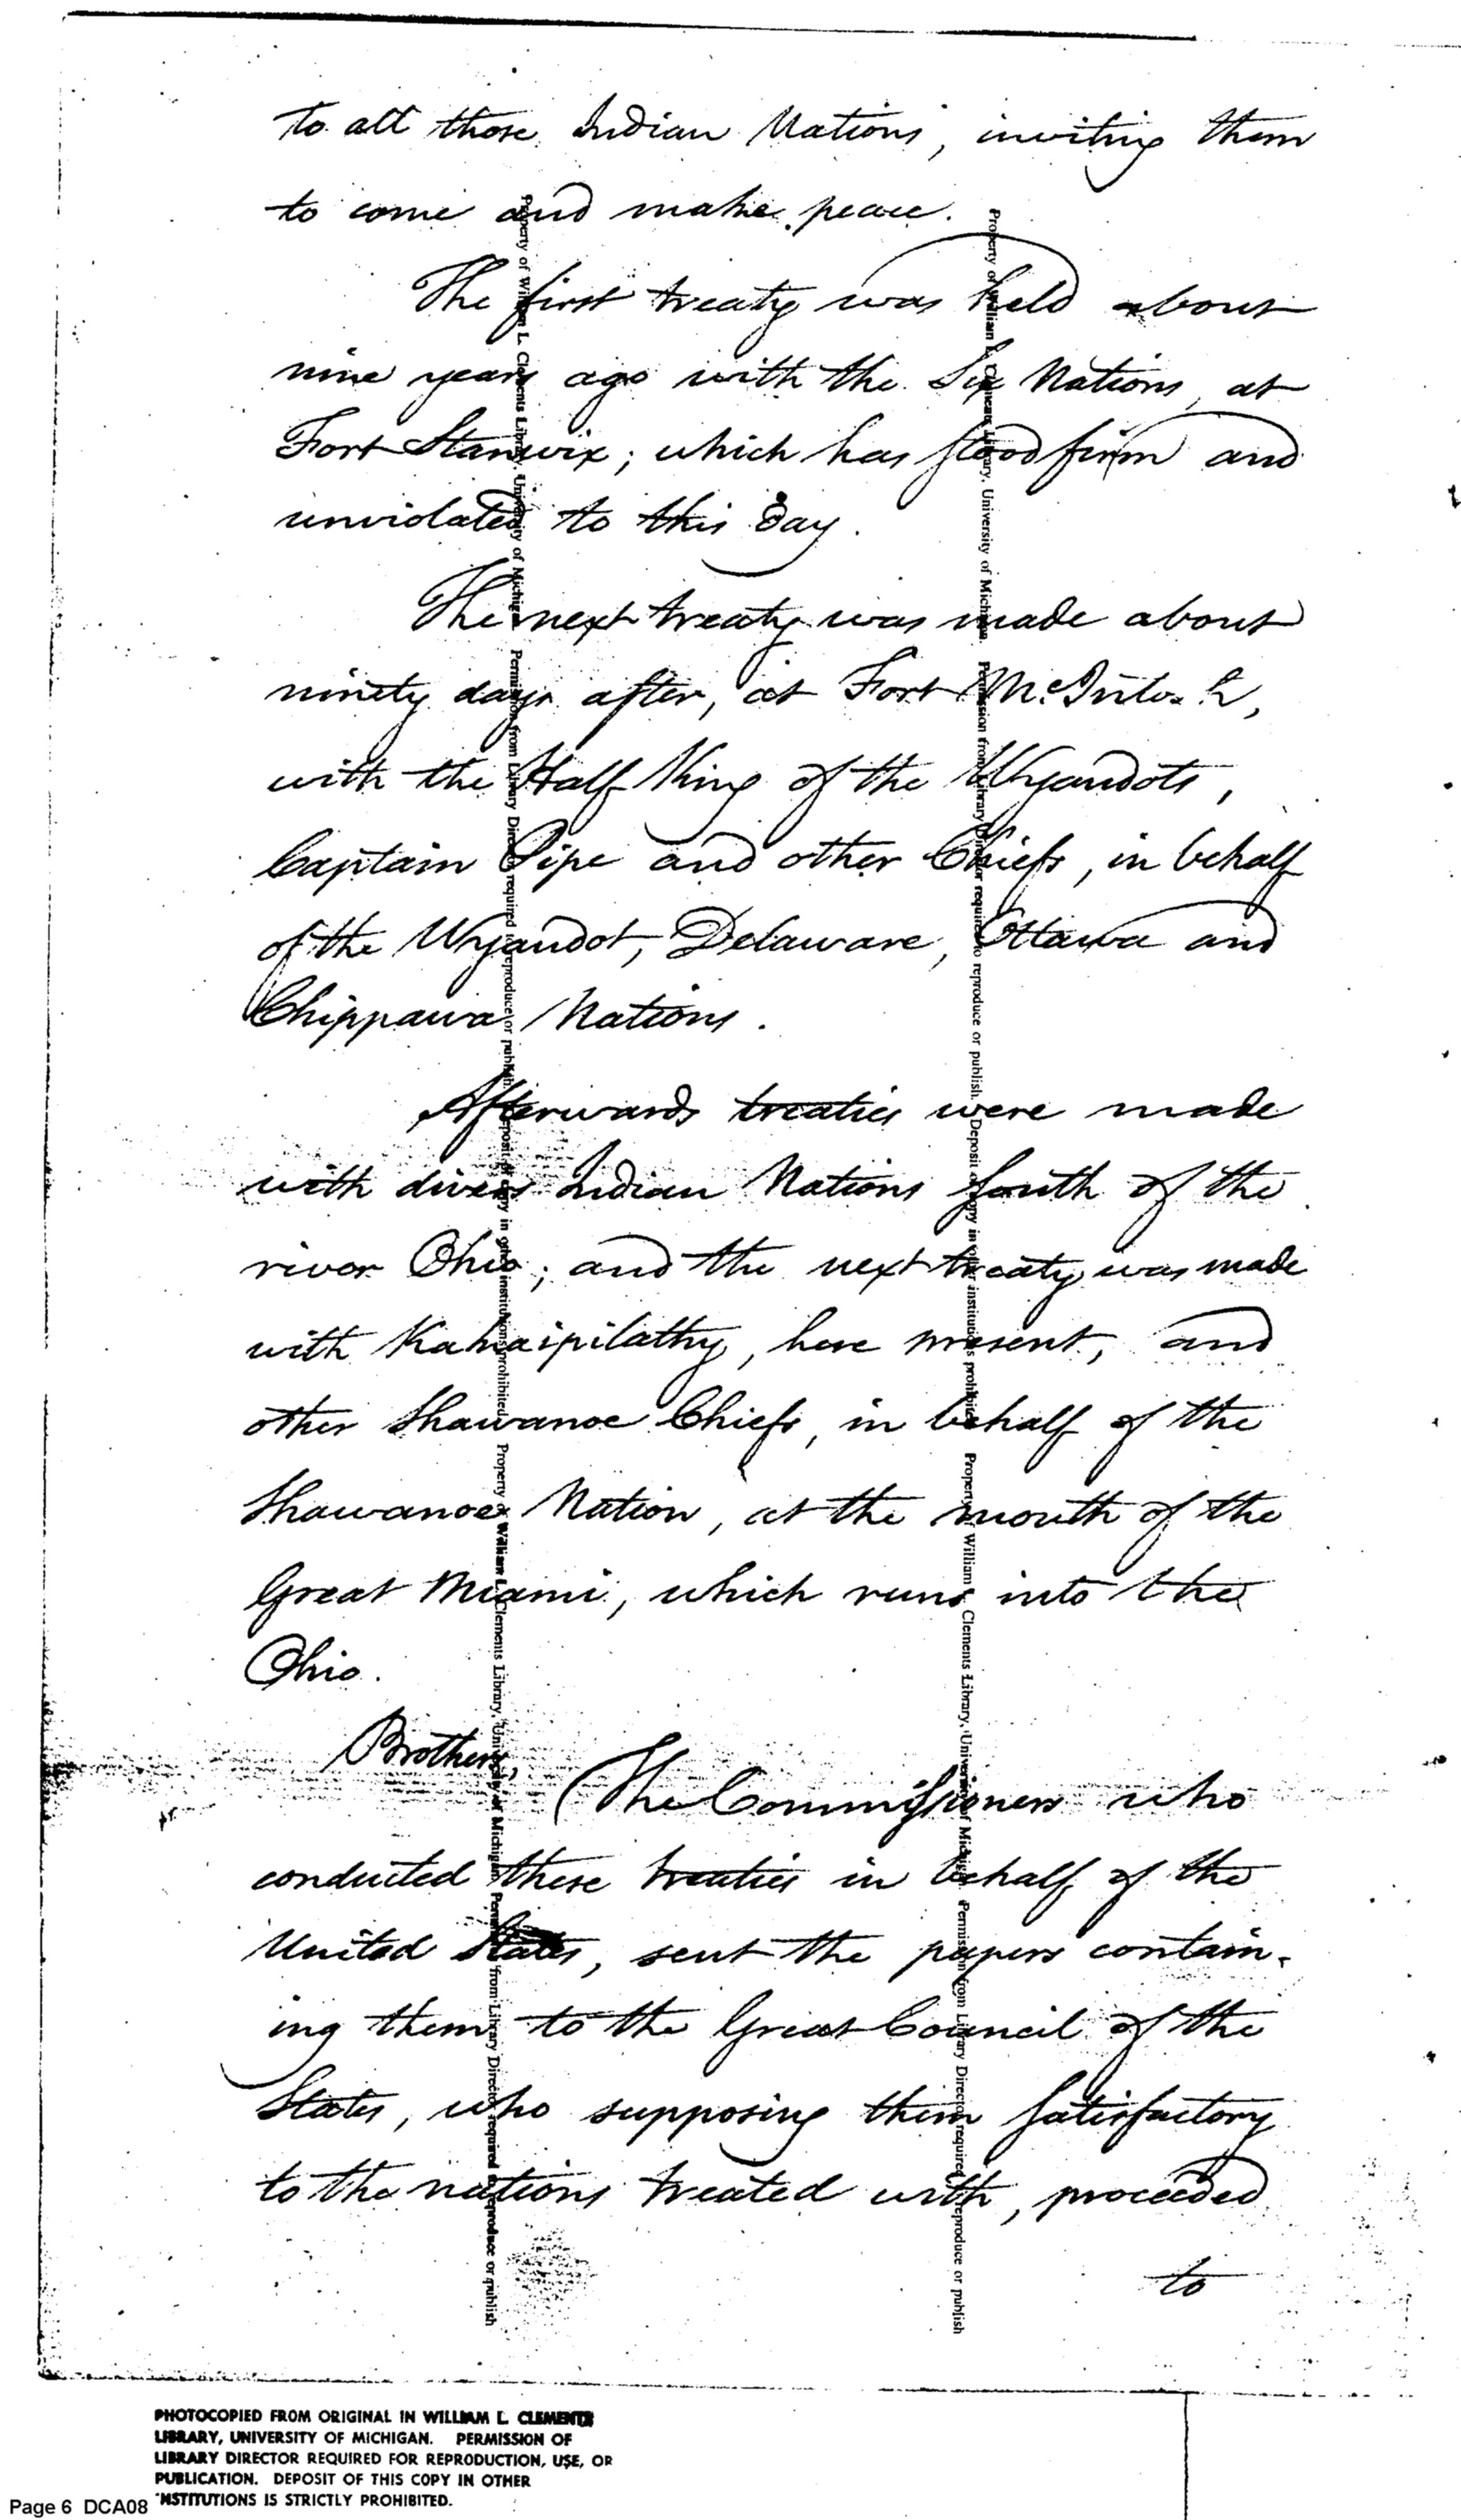 to all those Indian Nations, inviting them
to come and make peace.
The first treaty was held about
nine years ago with the Six Nations, at
Fort Stanwix; which has stood firm and
unviolated to this day.
The next treaty was made about
ninety days after, at Fort McIntosh,
with the Half King of the Wyandots,
Captain Pipe and other Chiefs, in behalf
of the Wyandot, Delaware, Ottawa and
Chippawa Nations.
Afterwards treaties were made
with divers Indian Nations South of the
river Ohio; and the next treaty was made
with Kakaipilathy, here present, and
other Shawanoe Chiefs, in behalf of the
Shawanoe Nation, at the mouth of the
Great Miami, which runs into the
Ohio.
Brothers,
The Commissioners who
conducted these treaties in behalf of the
United States, sent the papers contain-
ing them to the Great Council of the
States, who supposing them satisfactory
to the nations treated with, proceeded
to
Property of William L. Clements Library, University of Michigan. Permission from Library Director required to reproduce or publish. Deposit of copy in other institutions prohibited. Property of William L. Clements Library, University of Michigan. Permission from Library Director required to reproduce or publish
Property of William L. Clements Library, University of Michigan. Permission from Library Director required to reproduce or publish. Deposit of copy in other institutions prohibited. Property of William L. Clements Library, University of Michigan. Permission from Library Director required to reproduce or publish
PHOTOCOPIED FROM ORIGINAL IN WILLIAM L. CLEMENTS
LIBRARY, UNIVERSITY OF MICHIGAN. PERMISSION OF
LIBRARY DIRECTOR REQUIRED FOR REPRODUCTION, USE, OR
PUBLICATION. DEPOSIT OF THIS COPY IN OTHER
INSTITUTIONS IS STRICTLY PROHIBITED.
Page 6 DCA08